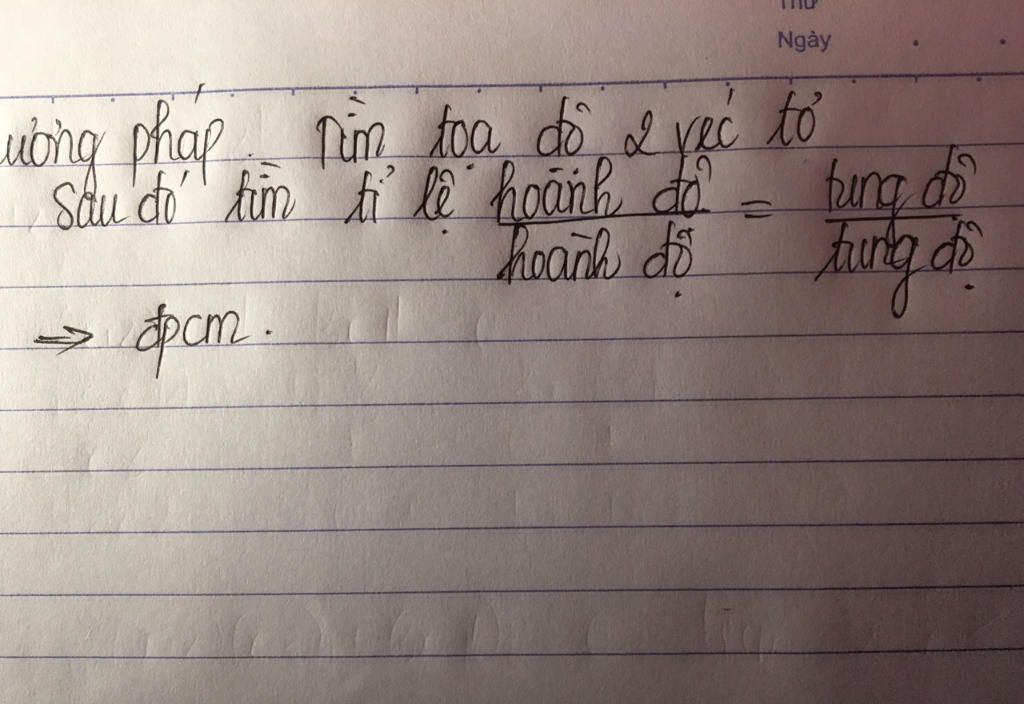 Thứ
Ngày
ương pháp. Tìm toạ độ 2 véc tơ
Sau đó tìm tỉ lệ hoành độ / hoành độ = tung độ / tung độ
⇒ đpcm.